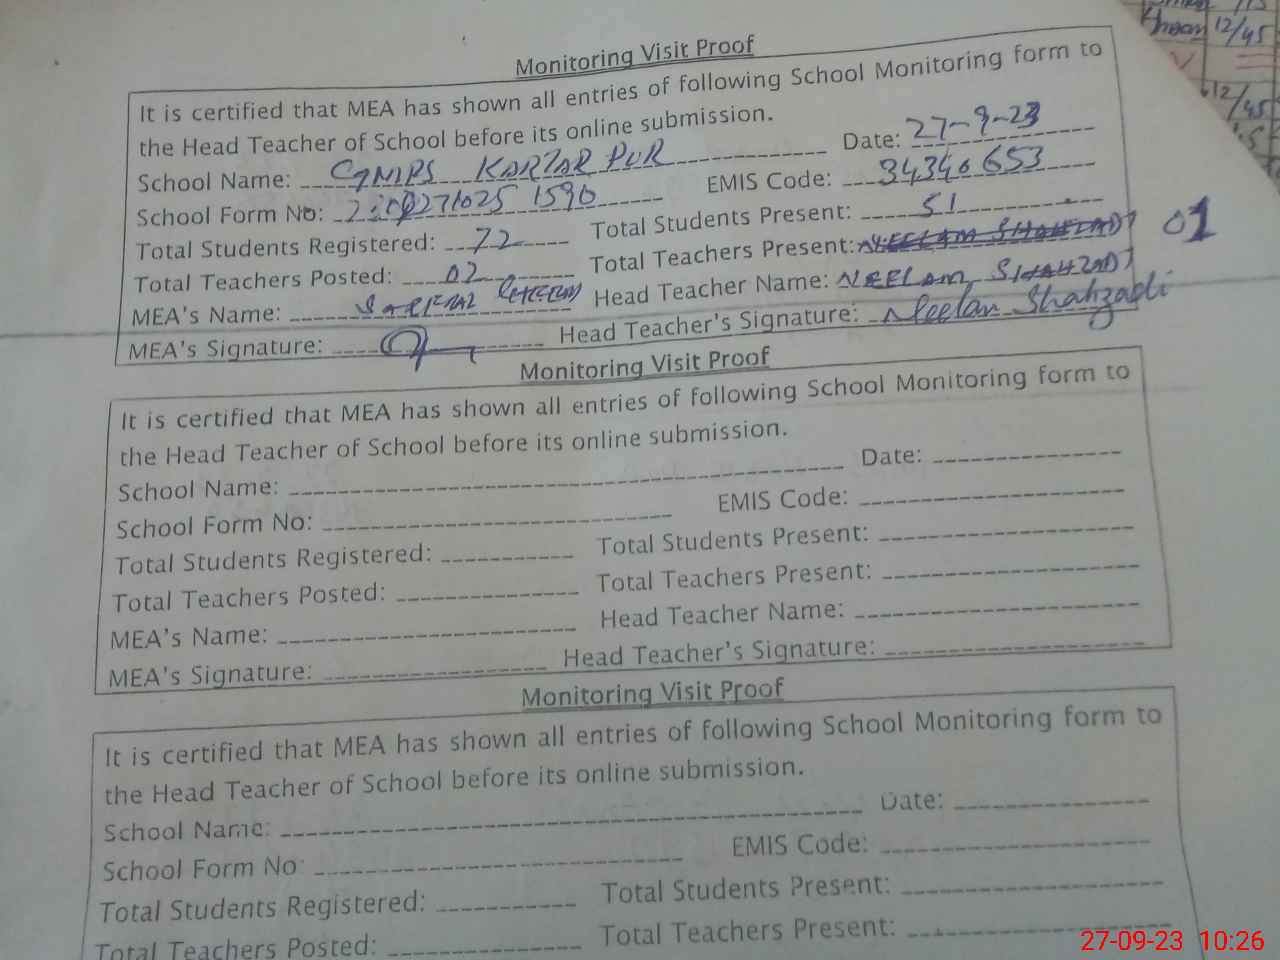 Monitoring Visit Proof
It is certified that MEA has shown all entries of following School Monitoring form to
the Head Teacher of School before its online submission.
School Name: GMPS KARTAR PUR Date: 27-9-23
School Form No: 1590 EMIS Code: 34340653
Total Students Registered: 72 Total Students Present: 51
Total Teachers Posted: 02 Total Teachers Present: NEELAM SHAHZADI 01
MEA's Name: Head Teacher Name: NEELAM SHAHZADI
MEA's Signature: Head Teacher's Signature: Neelam Shahzadi
Monitoring Visit Proof
It is certified that MEA has shown all entries of following School Monitoring form to
the Head Teacher of School before its online submission.
School Name: Date:
School Form No: EMIS Code:
Total Students Registered: Total Students Present:
Total Teachers Posted: Total Teachers Present:
MEA's Name: Head Teacher Name:
MEA's Signature: Head Teacher's Signature:
Monitoring Visit Proof
It is certified that MEA has shown all entries of following School Monitoring form to
the Head Teacher of School before its online submission.
School Name: Date:
School Form No EMIS Code:
Total Students Registered: Total Students Present:
Total Teachers Posted: Total Teachers Present:
12/45
12/45
27-09-23 10:26